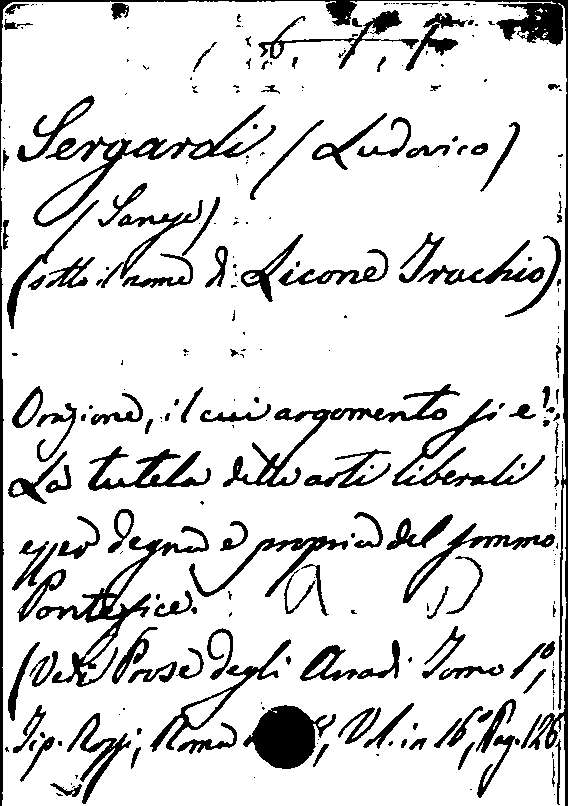 , 6, 1, 1
Sergardi (Ludovico)
(Sanese)
(sotto il nome di Licone Trachio)
Orazione, il cui argomento si e!:
La tutela delle arti liberali
esser degna e propria del sommo
Pontefice.
(Vedi Prose degli Arcadi Tomo 1º,
Tip. Rossi, Roma 8, Vol. in 16º, Pag. 126